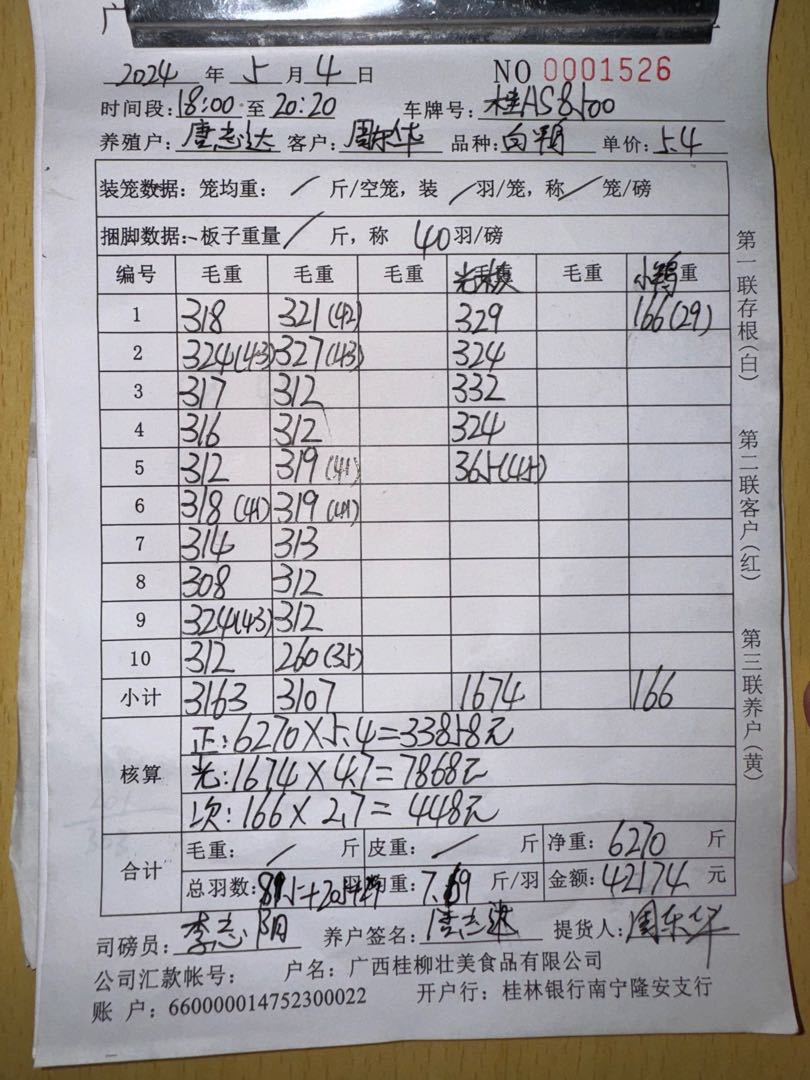 广
2024 年 5 月 4 日 NO 0001526
时间段: 18:00 至 20:20 车牌号: 桂AS8500
养殖户: 唐志达 客户: 周东华 品种: 白鸭 单价: 5.4
装笼数据: 笼均重: / 斤/空笼, 装 / 羽/笼, 称 / 笼/磅
捆脚数据: 板子重量 / 斤, 称 40 羽/磅
编号 毛重 毛重 毛重 毛重 小鸭重
1 318 321(42) 329 166(29)
2 324(43) 327(43) 324
3 317 312 332
4 316 312 324
5 312 319(41) 365(45)
6 318(41) 319(41)
7 314 313
8 308 312
9 324(43) 312
10 312 260(35)
小计 3163 3107 1674 166
核算
正: 6270×5.4=33858元
光: 1674×4.7=7868元
次: 166×2.7=448元
合计
毛重: / 斤 皮重: / 斤 净重: 6270 斤
总羽数: 均重: 7.69 斤/羽 金额: 42174 元
司磅员: 李志阳 养户签名: 唐志达 提货人: 周东华
公司汇款帐号: 户名: 广西桂柳壮美食品有限公司
账户: 660000014752300022 开户行: 桂林银行南宁隆安支行
第一联存根(白)
第二联客户(红)
第三联养户(黄)